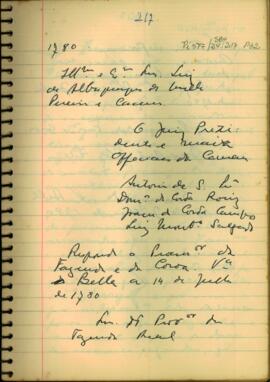 217
1780
Illmo e Emo Snr. Luiz
de Albuquerque de Mello
Pereira e Caceres
O Juiz Prezi
dente e mais
Officiaes da Camara
Antonio de S.
Domos da Costa Roiz
Joam da Costa
Luiz Salgado
Responda o
Fazenda e da Coroa Va
Bella a 14 de Julho
de 1780
Snr. Dr Provor da
Fazenda Real